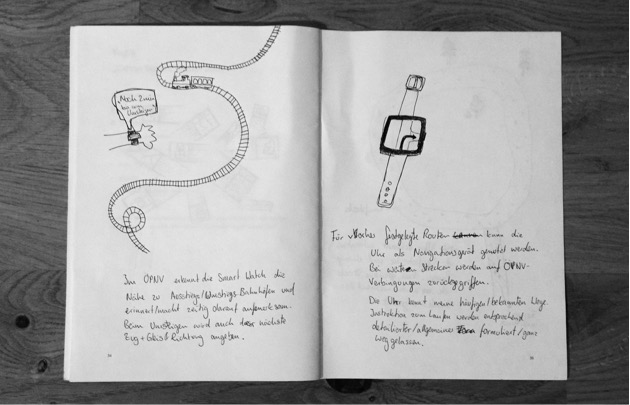 "Noch 2 min
bis zum
Umsteigen"
Im ÖPNV erkennt die Smart Watch die
Nähe zu Ausstiegs/Umstiegs-Bahnhöfen und
erinnert/macht zeitig darauf aufmerksam.
Beim Umsteigen wird auch das nächste
Zug + Gleis & Richtung angeben.
Für festgelegte Routen kann die
Uhr als Navigationsgerät genutzt werden.
Bei weiten Strecken werden auf ÖPNV-
Verbindungen zurückgegriffen.
Die Uhr kennt meine häufigen/bekannten Wege.
Instruktion zum Laufen werden entsprechend
detailierter/allgemeiner formuliert/ganz
weggelassen.